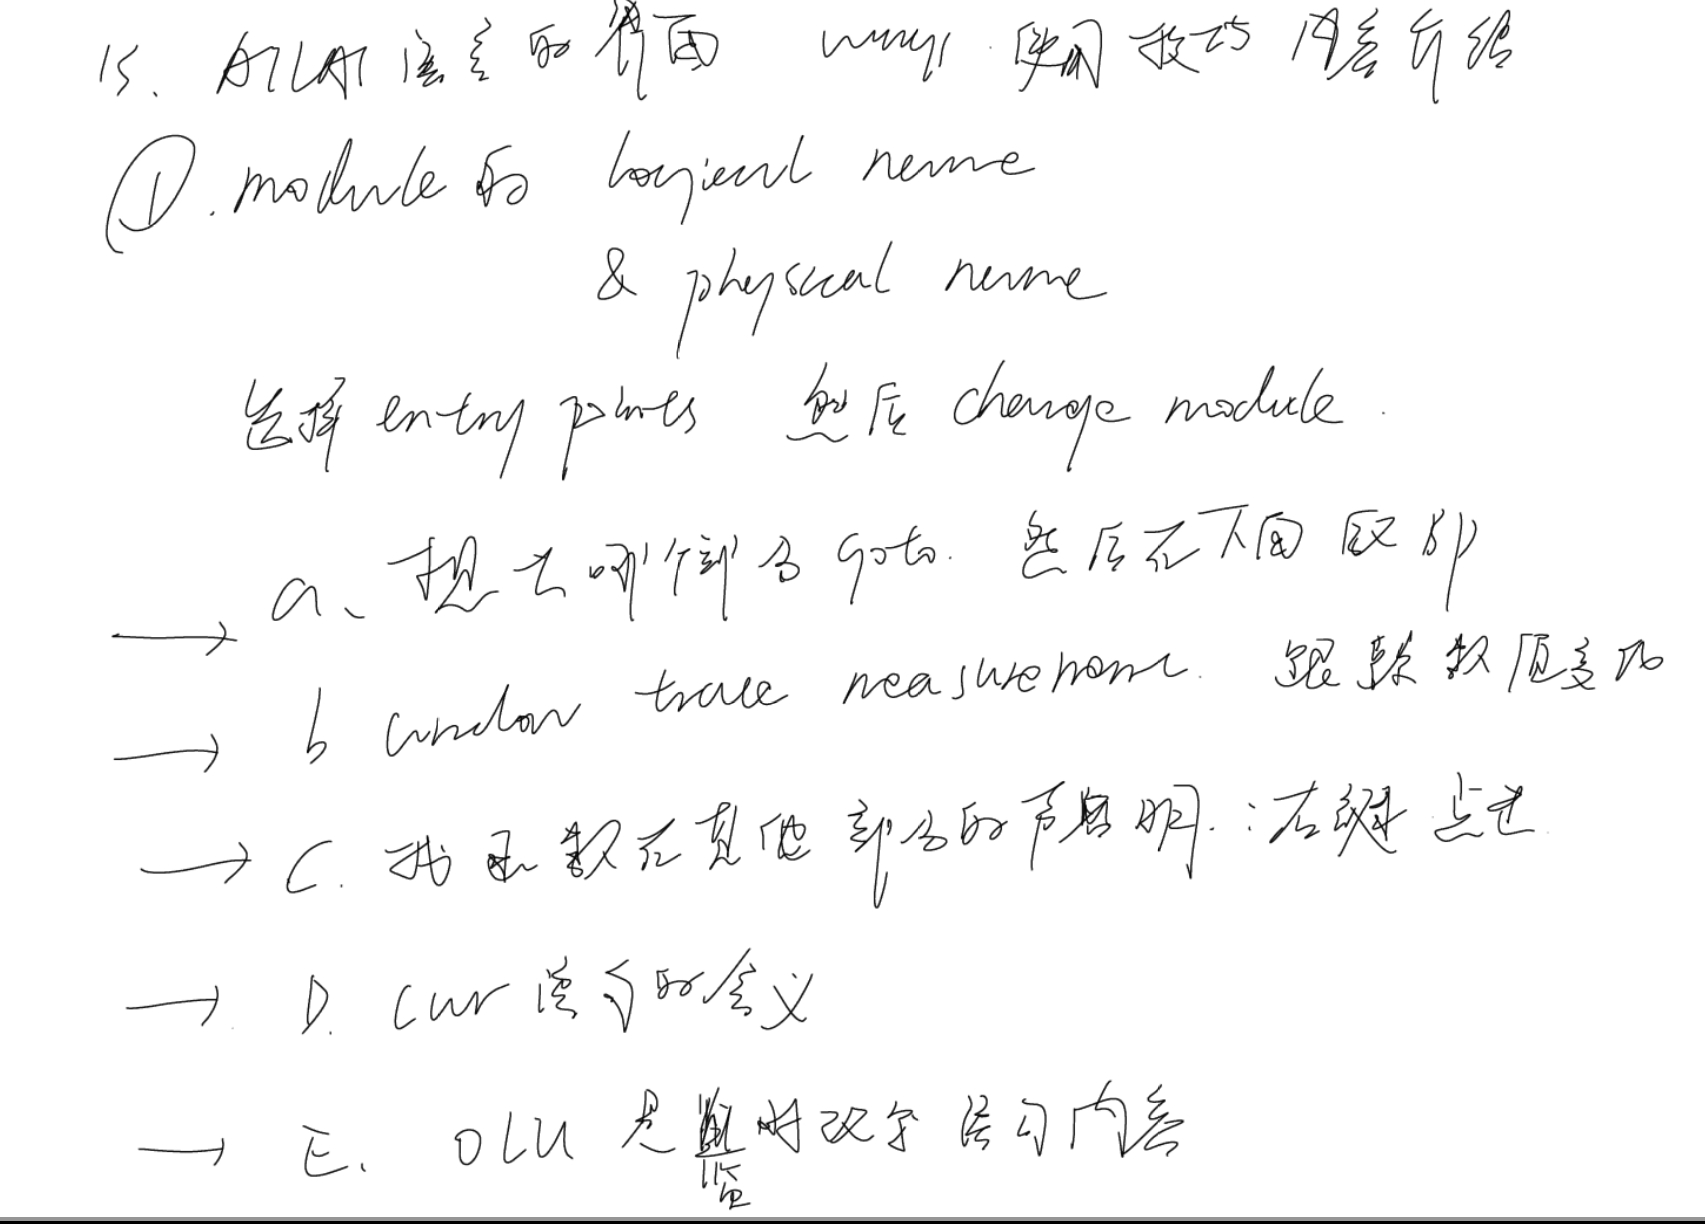 15. ATLAS 语言的界面 使用技巧 内容介绍
①. module 的 logical name
& physical name
选择 entry points 然后 change module.
a、想去哪个部分 goto. 然后在下面 区别
b window trace measurement. 跟踪数值变化
C. 找函数在其他部分的声明.:右键点进
D. cur 语句的含义
E. OLU 是临时改变语句内容